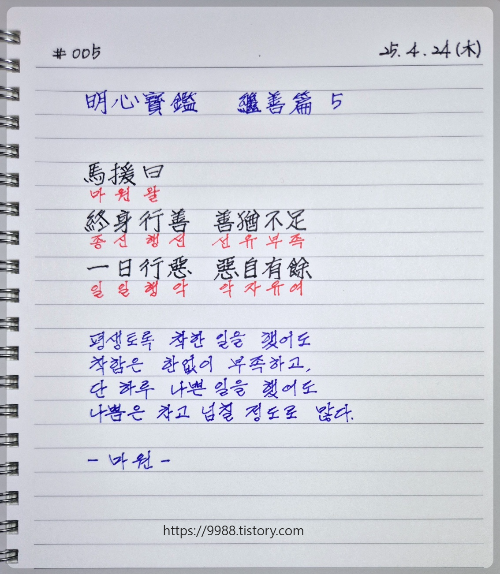 # 005
25. 4. 24 (木)
明心寶鑑 繼善篇 5
馬援曰
마원왈
終身行善 善猶不足
종신행선 선유부족
一日行惡 惡自有餘
일일행악 악자유여
평생토록 착한 일을 했어도
착함은 한없이 부족하고,
단 하루 나쁜 일을 했어도
나쁨은 차고 넘칠 정도로 많다.
- 마원 -
https://9988.tistory.com